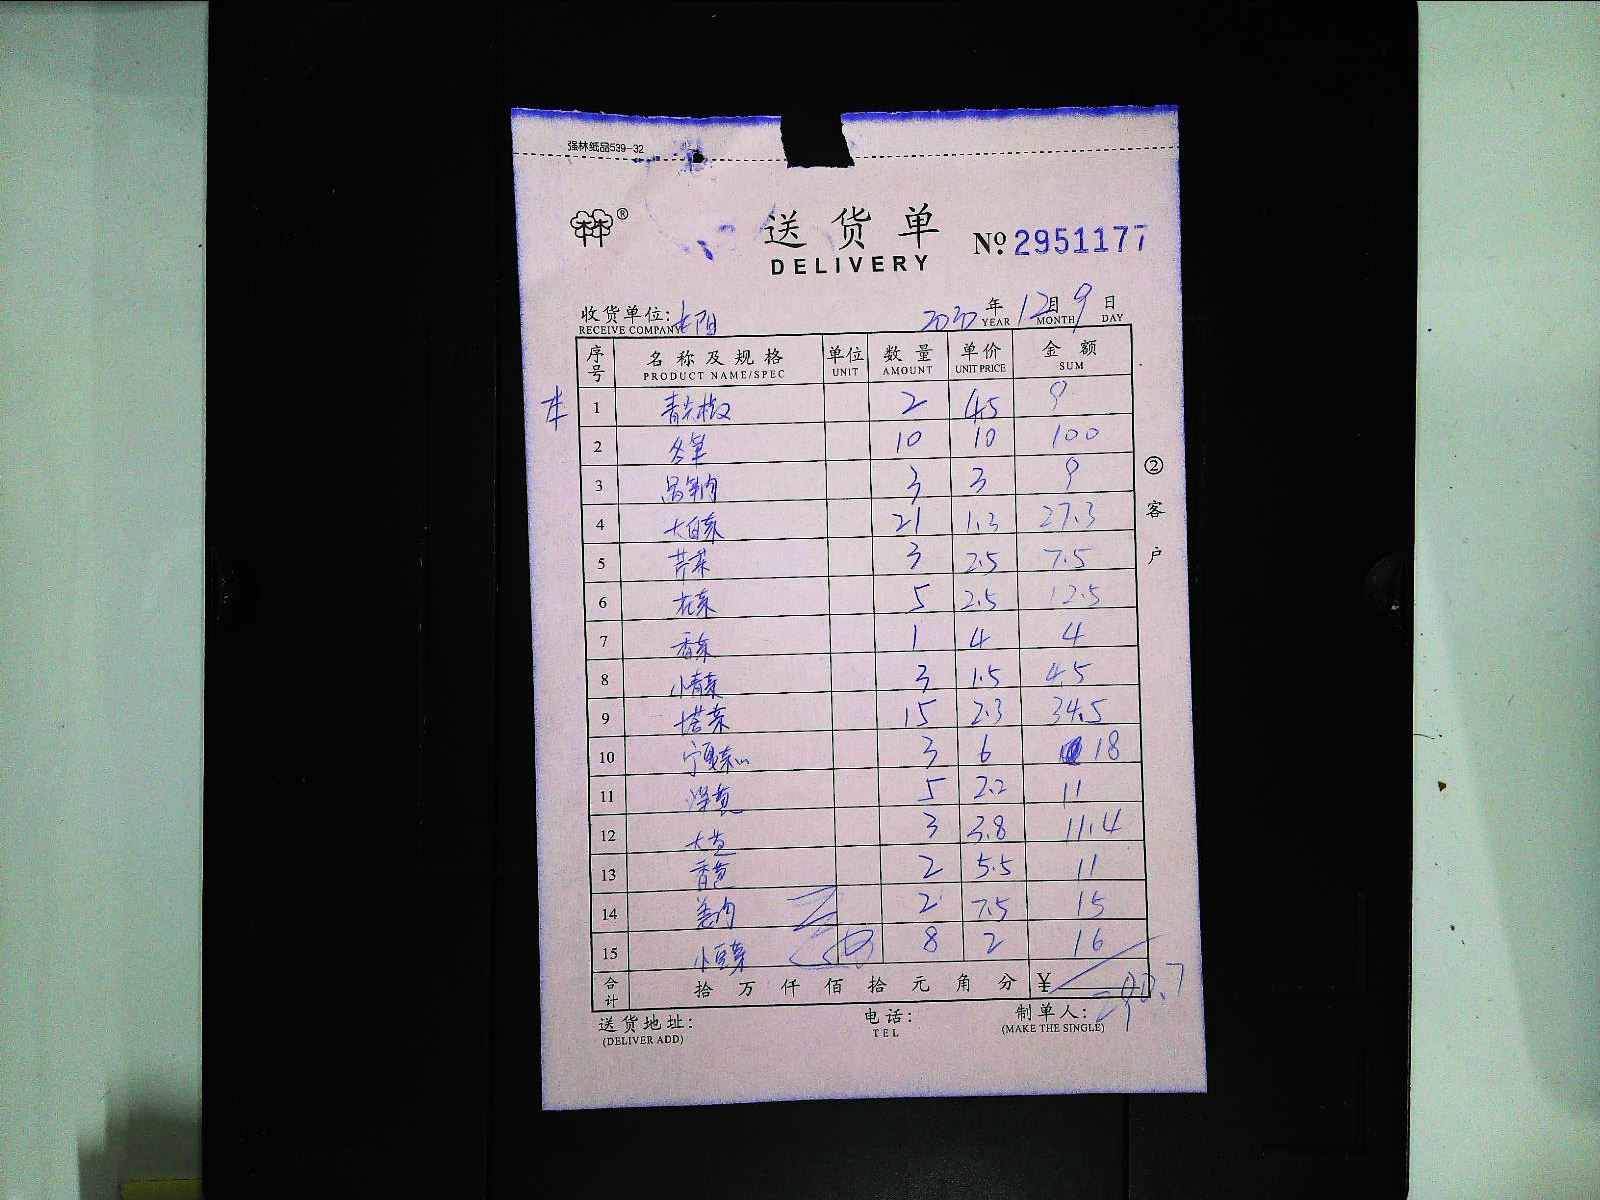 强林纸品539-32
®
送货单
DELIVERY
№ 2951177
收货单位:
RECEIVE COMPANY
年 12月 9 日
YEAR MONTH DAY
序号 名称及规格 单位 数量 单价 金额
PRODUCT NAME/SPEC UNIT AMOUNT UNIT PRICE SUM
1 青尖椒 2 4.5 9
2 冬笋 10 10 100
3 3 3 9
4 大白菜 21 1.3 27.3
5 芹菜 3 2.5 7.5
6 花菜 5 2.5 12.5
7 香菜 1 4 4
8 小青菜 3 1.5 4.5
9 塔菜 15 2.3 34.5
10 宁夏菜心 3 6 18
11 洋葱 5 2.2 11
12 大葱 3 3.8 11.4
13 香葱 2 5.5 11
14 2 7.5 15
15 小豆芽 8 2 16
合计 拾 万 仟 佰 拾 元 角 分 ¥ 290.7
②客户
送货地址:
(DELIVER ADD)
电话:
TEL
制单人:
(MAKE THE SINGLE)